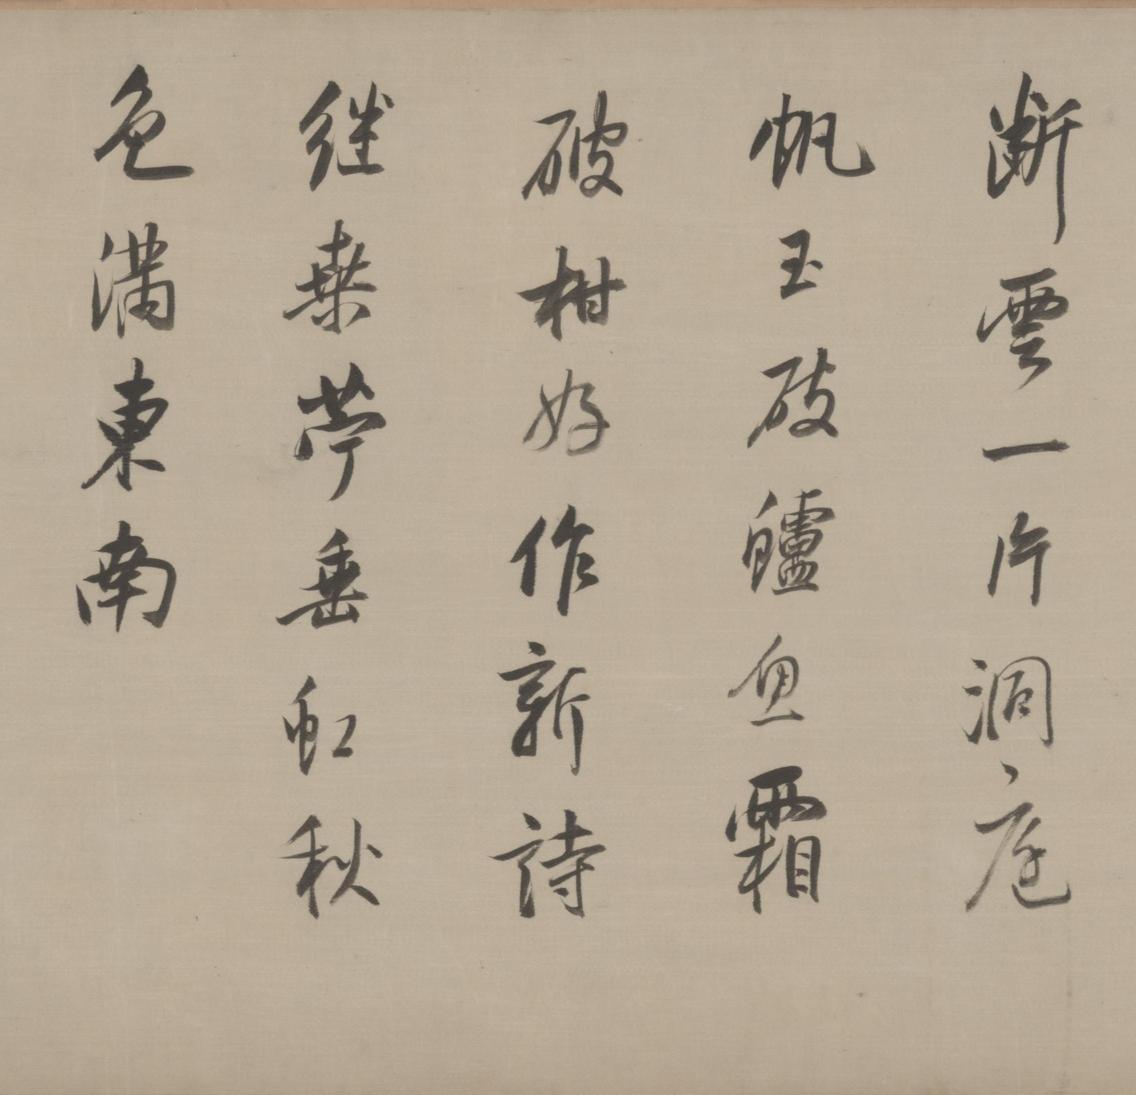 斷雲一片洞庭
帆玉破鱸魚霜
破柑好作新詩
繼桑苧垂虹秋
色滿東南